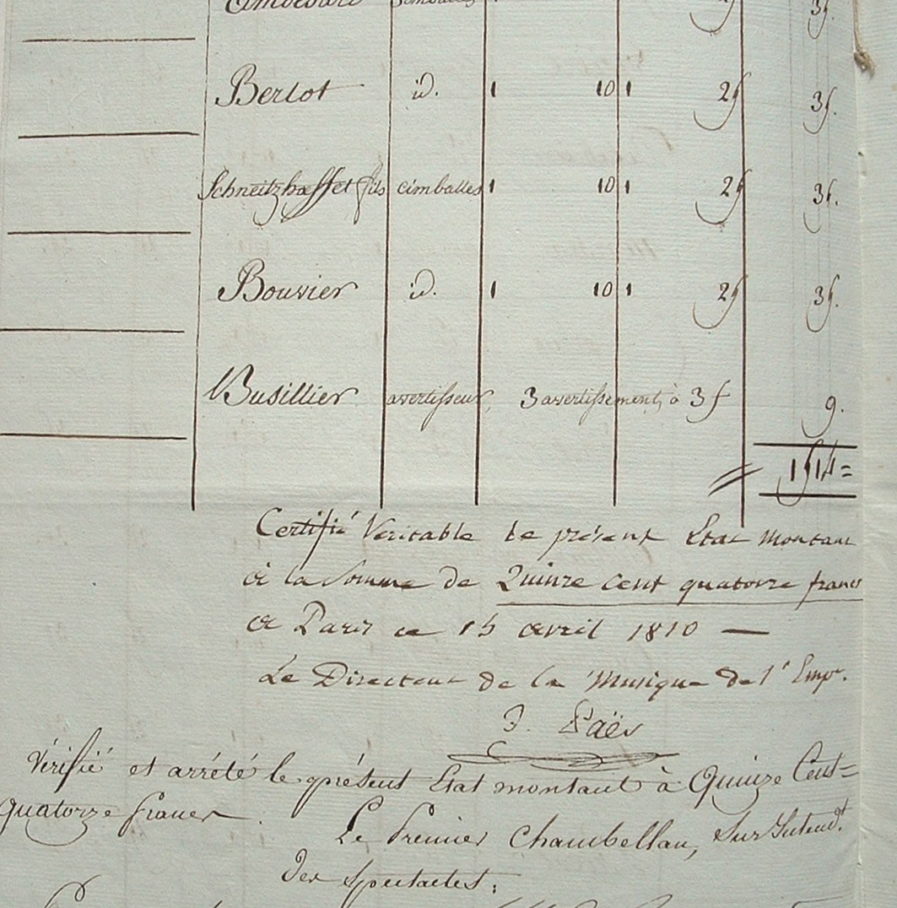 Bertot id. 1 10 1 2f 3f.
Schneitzhœffer fils cimballes 1 10 1 2f 3f.
Bouvier id. 1 10 1 2f 3f.
Busillier avertisseur, 3 avertissements à 3f 9.
1514=
Certifié Veritable le présent Etat montant
à la Somme de Quinze cent quatorze francs
a Paris ce 15 avril 1810 —
Le Directeur de la Musique de l'Empr.
F. Paër
Vérifié et arrêté le présent Etat montant à Quinze Cent=
quatorze francs.
Le Premier Chambellan, Sur Intendt.
des Spectacles;